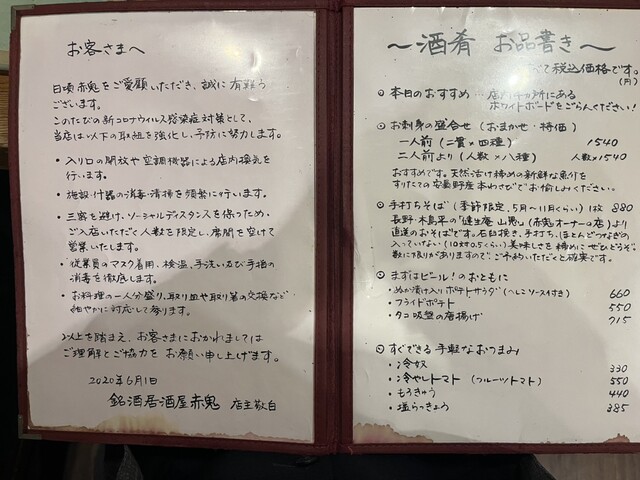 お客さまへ
日頃 赤鬼をご愛顧いただき、誠に有難う
ございます。
このたびの新コロナウイルス感染症対策として、
当店は以下の取組を強化し、予防に努力します。
・入り口の開放や空調機器による店内換気を
行います。
・施設・什器の消毒・清掃を頻繁に行います。
・三密を避け、ソーシャルディスタンスを保つため・
ご入店いただく人数を限定し、席間を空けて
営業いたします。
・従業員のマスク着用、検温、手洗い及び手指の
消毒を徹底します。
・お料理の一人分盛り、取り皿や取り箸の交換など
細やかに対応して参ります。
以上を踏まえ、お客さまにおかれましては
ご理解とご協力を お願い申し上げます。
2020年6月1日
銘酒居酒屋赤鬼 店主敬白
〜酒肴 お品書き〜
て税込価格です。
(円)
◎ 本日のおすすめ… 店内 カ所にある
ホワイトボードをごらんください!
◎ お刺身の盛合せ (おまかせ・特価)
一人前 (二貫×四種) 1540
二人前より (人数×八種) 人数×1540
おすすめです。天然活け締めの新鮮な魚介を
すりたての安曇野産本わさびでお愉しみください。
◎ 手打ちそば (季節限定、5月〜11月くらい) 1枚 880
長野・木島平の「健生庵 山鬼」(赤鬼オーナーの店)より
直送のおそばです。石臼挽き、手打ち、ほとんどつなぎの
入っていない (10対0.5くらい) 美味しさを締めにぜひどうぞ。
数に限りがありますので、ご予約いただくと確実です。
◎ まずはビール!のおともに
・ぬか漬け入りポテトサラダ (へしこソース付き) 660
・フライドポテト 550
・タコ吸盤の唐揚げ 715
◎ すぐできる 手軽なおつまみ
・冷奴 330
・冷やしトマト (フルーツトマト) 550
・もろきゅう 440
・塩らっきょう 385